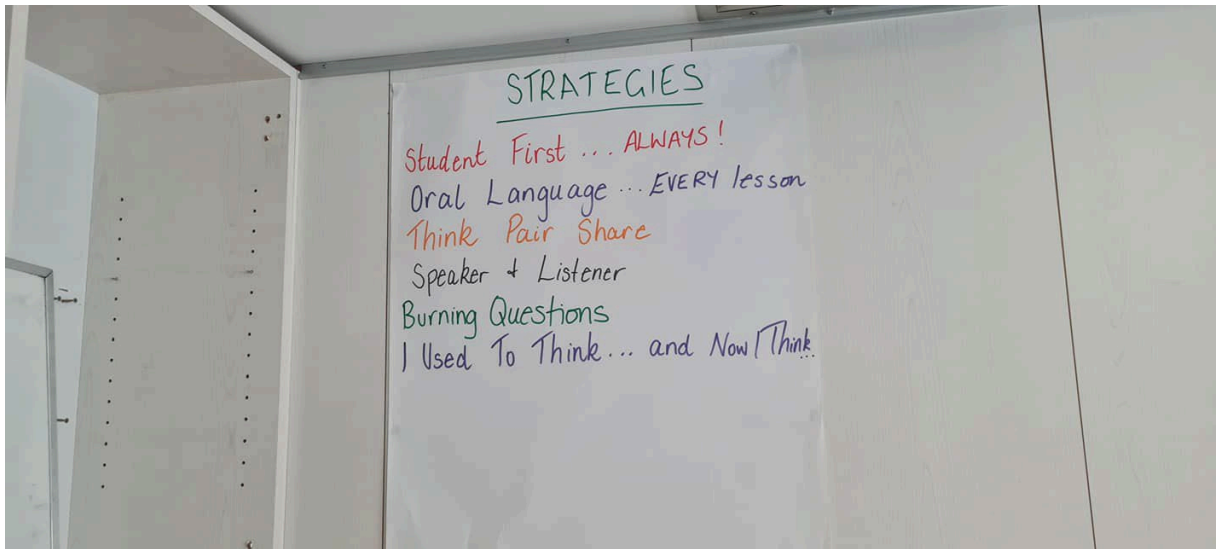 STRATEGIES
Student First ... ALWAYS!
Oral Language ... EVERY lesson
Think Pair Share
Speaker + Listener
Burning Questions
I Used To Think... and Now I Think...